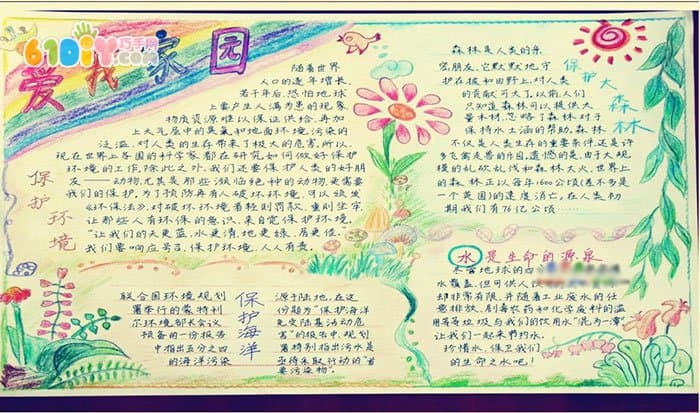 61DIY巧手网
.com
爱我家园
保护环境
随着世界
人口的逐年增长,
若干年后,恐怕地球
上要产生人满为患的现象
物质资源难以保证供给,再加
上大气层中的臭氧和地面环境污染的
泛滥,对人类的生存带来了极大的危害,所以,
现在世界上各国的科学家都在研究如何做好保护
环境的工作,除此之外,我们还要保护人类的好朋
友——动物,尤其是那些濒临绝种的动物更需要
我们的保护,为了预防再有人破坏环境,可以颁发
《环保法》,对破坏环境者轻则罚款,重则坐牢,
让那些人有环保的意识,来自觉保护环境,
"让我们的天更蓝,水更清,地更绿,居更佳。"
我们要响应号召,保护环境,人人有责,
保护大森林
森林是人类的亲
密朋友,它默默地守
护在坡和田野上,对人类
的贡献可大了,以前人们
只知道森林可以提供大
量木材,忽略了森林对于
保持水土涵的帮助,森林
不仅是人类生存的重要条件,还是许
多飞禽走兽的作园,遗憾的是,由于大规
模的乱砍乱伐和森林大火,世界上
的森林正以每年1600公顷(差不多是
一个英国)的速度消亡,在人类初
期我们有76亿公顷……
保护海洋
联合国环境规划
署举行的蒙特利
尔环境部长会议
预备的一份报告
中指出五分之四
的海洋污染
源于陆地,在这
份题为"保护海洋
免受陆基活动危
害"的报告中,规划
署特别指出污水是
亟待采取行动的"首
要污染物"。
水是生命的源泉
尽管地球的四
水覆盖,但可供人
却非常有限,并随着工业废水的任
意排放,剧毒农药和化学废料的滥
用等等垃圾与我们的饮用水"混为一潭"
让我们一起来节约水,
珍惜水,保卫我们
的生命之水吧!